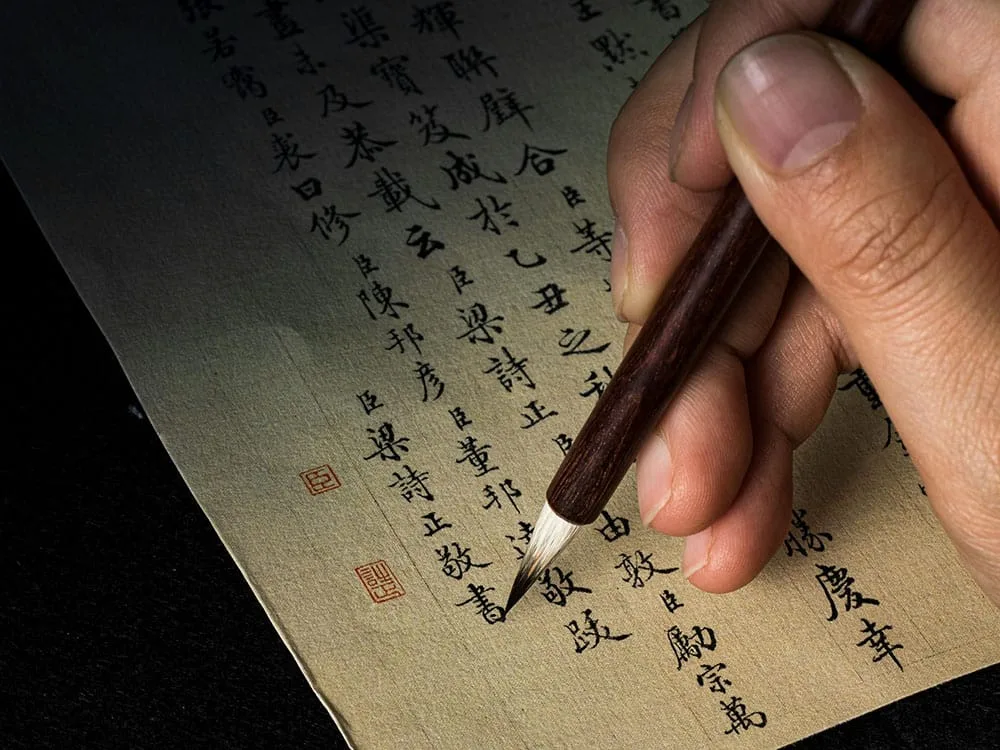 書
王默
輝聯璧合臣等
渠寶笈成於乙丑之
勝慶幸
畫未及恭載云臣梁詩正臣
由敦臣勵宗萬
張若靄臣裘曰修臣陳邦彥臣董邦達敬跋
臣梁詩正敬書
臣
詩正